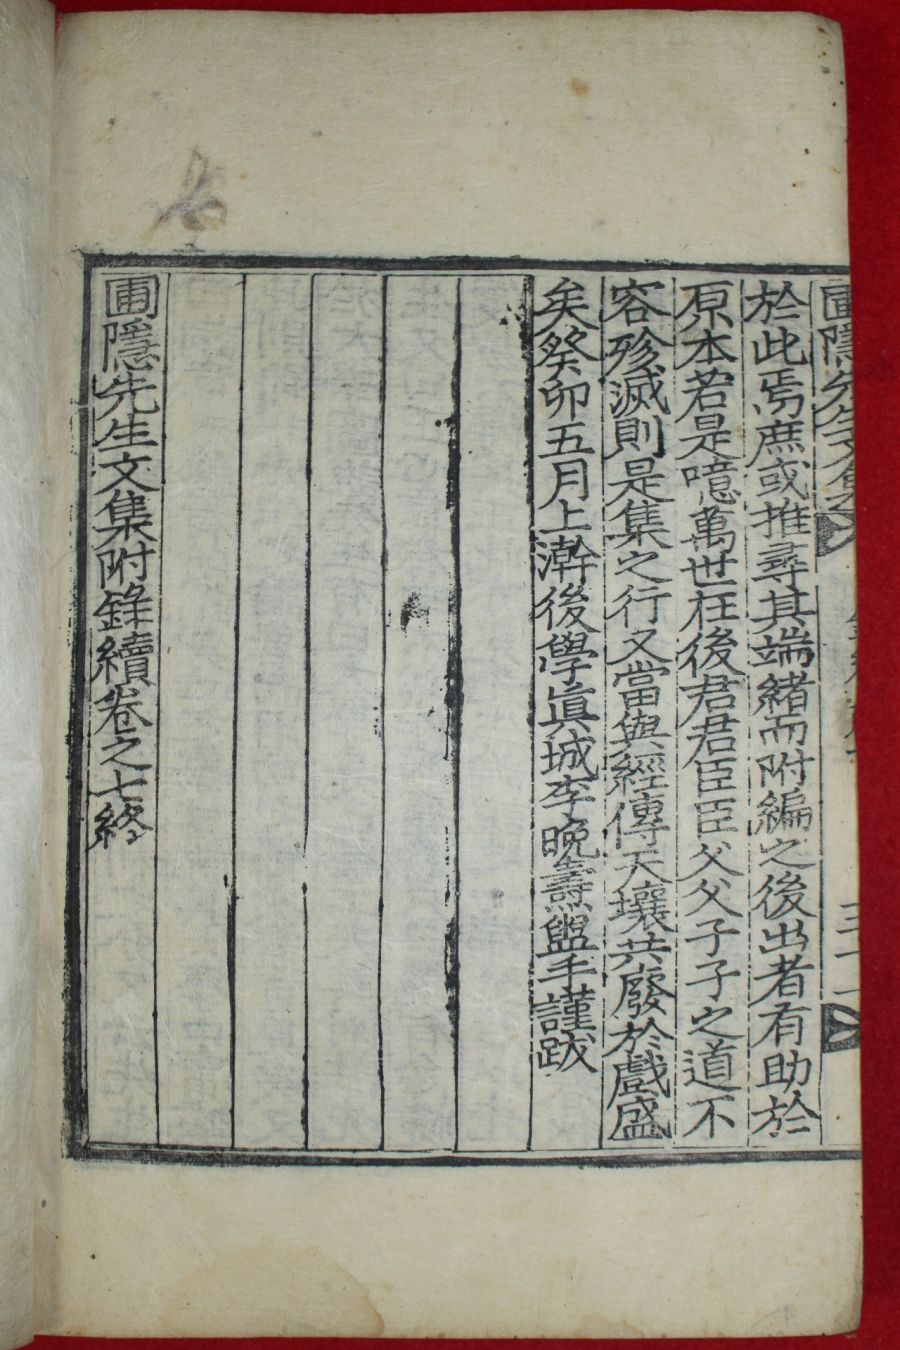 圃隱先生文集
於此焉庶或推尋其端緖而附編之後出者有助於
原本若是噫萬世在後君君臣臣父父子子之道不
容殄滅則是集之行又當與經傳天壤共廢於戲盛
矣癸卯五月上澣後學眞城李晚燾盥手謹跋
圃隱先生文集附錄續卷之七終